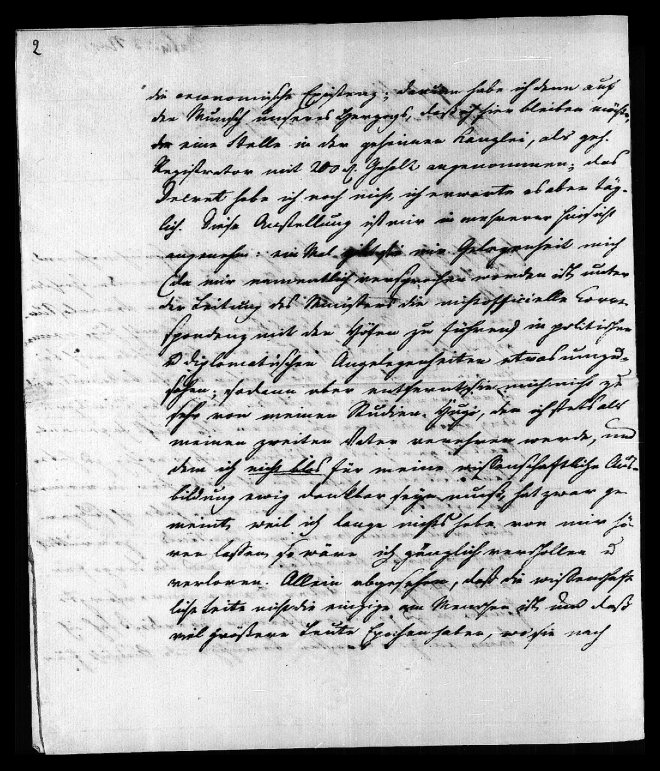 2
die oeconomische Existenz; darum habe ich denn auf
den Wunsch unseres Herzogs, daß ich hier bleiben möch-
te eine Stelle in der geheimen Kanzlei, als geh.
Registrator mit 200 f. Gehalt angenommen; das
Decret habe ich noch nicht, ich erwarte es aber täg-
lich. Diese Anstellung ist mir in mehrerer Hinsicht
angenehm: ein Mal mir Gelegenheit mich
(da mir namentlich versprochen worden ist, unter
der Leitung des Ministers die nichtofficielle Corre-
spondenz mit den Höfen zu führen) in politischen
u diplomatischen Angelegenheiten etwas umzu-
sehen; sodann aber entfernt sie mich nicht zu
sehr von meinen Studien. Hugi, den ich stets als
meinen zweiten Vater verehren werde, und
dem ich nicht blos für meine wissenschaftliche Aus-
bildung ewig dankbar seyn muß, hat zwar ge-
meint, weil ich lange nichts habe von mir hö-
ren lassen, so wäre ich gänzlich verschollen u
verloren. Allein abgesehen, daß die wissenschaft-
liche Seite nicht die einzige am Menschen ist, und daß
viel größere Leute Epochen haben, wo sie nach